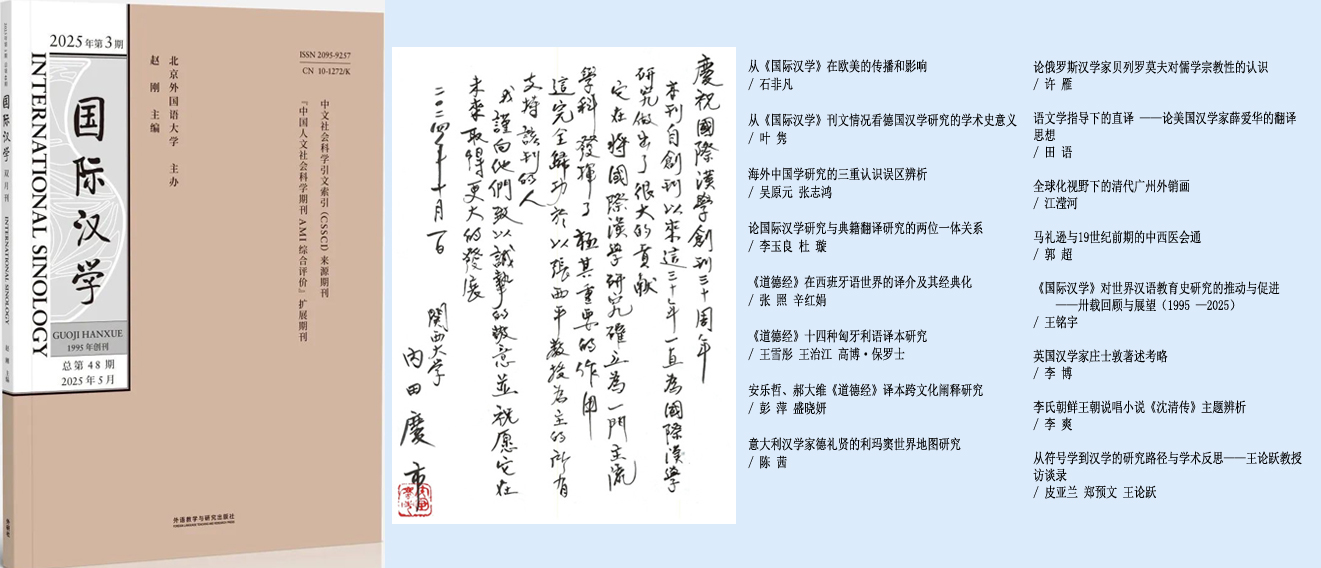 2025年第3期
INTERNATIONAL SINOLOGY
国际汉学
GUOJI HANXUE
1995年创刊
总第48期
2025年5月
国际汉学 双月刊
INTERNATIONAL SINOLOGY
赵刚 主编
外研社
北京外国语大学 主办
赵 刚 主编
ISSN 2095-9257
CN 10-1272/K
中文社会科学引文索引(CSSCI)来源期刊
『中国人文社会科学期刊AMI综合评价』扩展期刊
外语教学与研究出版社
FOREIGN LANGUAGE TEACHING AND RESEARCH PRESS
慶祝國際漢學創刊三十周年
本刊自創刊以來這三十年一直為國際漢學
研究做出了很大的貢献
它在將國際漢學研究確立為一門主流
學科 發揮了極其重要的作用
這完全歸功於以張西平教授為主的所有
支持該刊的人
我謹向他們致以誠摯的敬意並祝愿它在
未來取得更大的發展
二〇二四年十月一日
関西大学
内田慶市
从《国际汉学》在欧美的传播和影响
/ 石非凡
从《国际汉学》刊文情况看德国汉学研究的学术史意义
/ 叶 隽
海外中国学研究的三重认识误区辨析
/ 吴原元 张志鸿
论国际汉学研究与典籍翻译研究的两位一体关系
/ 李玉良 杜 璇
《道德经》在西班牙语世界的译介及其经典化
/ 张 照 辛红娟
《道德经》十四种匈牙利语译本研究
/ 王雪彤 王治江 高博·保罗士
安乐哲、郝大维《道德经》译本跨文化阐释研究
/ 彭 萍 盛晓妍
意大利汉学家德礼贤的利玛窦世界地图研究
/ 陈 茜
论俄罗斯汉学家贝列罗莫夫对儒学宗教性的认识
/ 许 雁
语文学指导下的直译 ——论美国汉学家薛爱华的翻译
思想
/ 田 语
全球化视野下的清代广州外销画
/ 江滢河
马礼逊与19世纪前期的中西医会通
/ 郭 超
《国际汉学》对世界汉语教育史研究的推动与促进
——卅载回顾与展望（1995 —2025）
/ 王铭宇
英国汉学家庄士敦著述考略
/ 李 博
李氏朝鲜王朝说唱小说《沈清传》主题辨析
/ 李 爽
从符号学到汉学的研究路径与学术反思——王论跃教授
访谈录
/ 皮亚兰 郑预文 王论跃